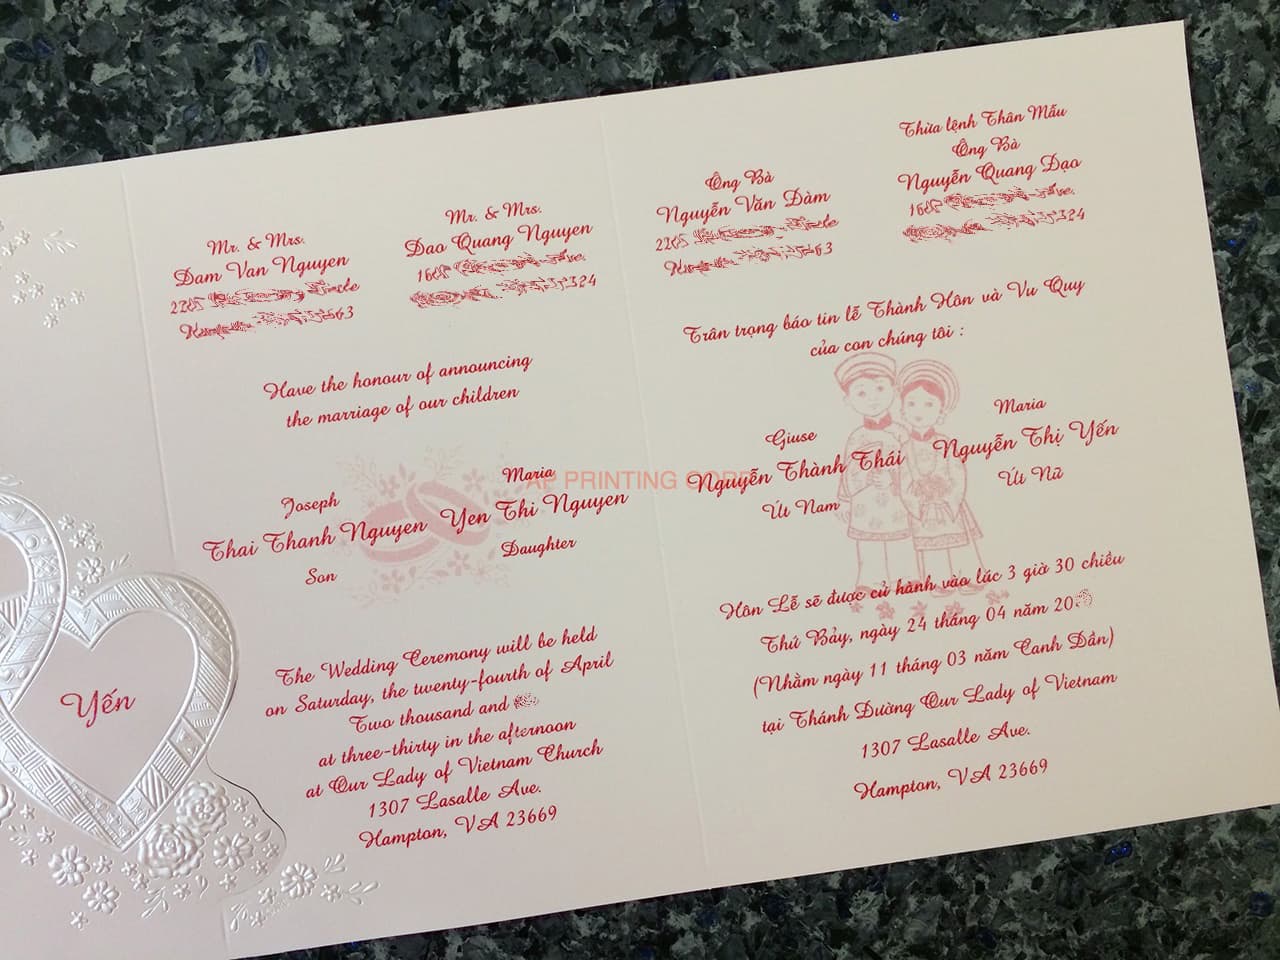 Yến
Mr. & Mrs.
Dam Van Nguyen
Mr. & Mrs.
Dao Quang Nguyen
Have the honour of announcing
the marriage of our children
Joseph
Thai Thanh Nguyen
Son
Maria
Yen Thi Nguyen
Daughter
AP PRINTING CORP
The Wedding Ceremony will be held
on Saturday, the twenty-fourth of April
Two thousand and
at three-thirty in the afternoon
at Our Lady of Vietnam Church
1307 Lasalle Ave.
Hampton, VA 23669
Ông Bà
Nguyễn Văn Dàm
Thừa lệnh Thân Mẫu
Ông Bà
Nguyễn Quang Dạo
Trân trọng báo tin lễ Thành Hôn và Vu Quy
của con chúng tôi :
Giuse
Nguyễn Thành Thái
Út Nam
Maria
Nguyễn Thị Yến
Út Nữ
Hôn Lễ sẽ được cử hành vào lúc 3 giờ 30 chiều
Thứ Bảy, ngày 24 tháng 04 năm 20
(Nhằm ngày 11 tháng 03 năm Canh Dần)
tại Thánh Đường Our Lady of Vietnam
1307 Lasalle Ave.
Hampton, VA 23669